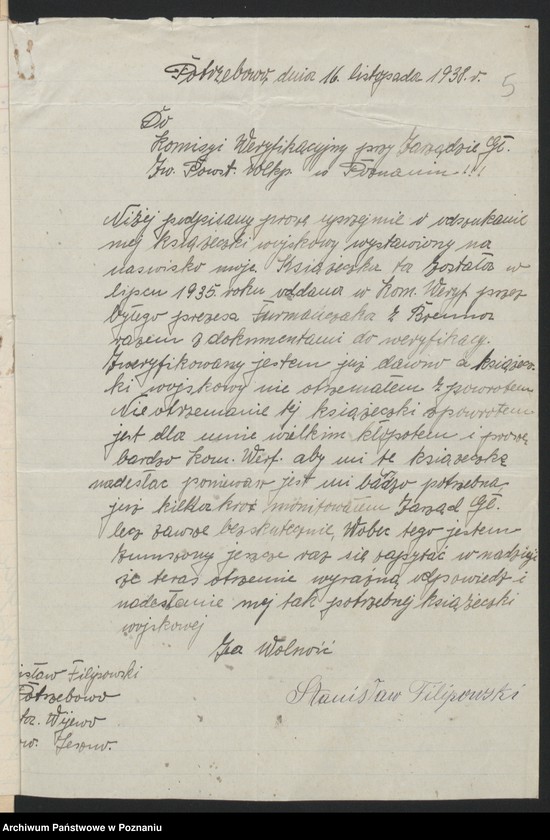 Potrzebowo, dnia 16. listopada 1938. r.
5
Do
Komisyi Weryfikacyjny przy Zarządzie Gł.
Zw. Powst. Wlkp. w Poznaniu!!!
Niżej podpisany proszę uprzejmie o odszukanie
mej książeczki wojskowy wystawiony na
naswisko moje. Książeczka ta została w
lipcu 1935 roku oddana w Kom. Weryf. przez
byłego prezesa Furmańczaka z Brenna
razem z dokumentami do weryfikacy.
Zweryfikowany jestem już dawno a książecz-
ki wojskowy nie otrzemałem z powrotem
Nie otrzemanie tej książeczki spowrotem
jest dla mnie wielkim kłopotem i proszę
bardzo Kom. Werf. aby mi te książeczką
nadesłać poniewarz jest mi badzo potrzebna
już kielka kroć monitowałem Zarząd Gł.
lecz zawsze bezskutecznie, Wobec tego jestem
zumszony jeszcze raz się zapytać w nadzieji
że teras otrzemie wyraźną odpowiedź i
nadesłanie mej tak potrzebnej książeczki
wojskowej
Za Wolność
isław Filipowski
Potrzebowo
Wijewo
Stanisław Filipowski
Archiwum Państwowe w Poznaniu